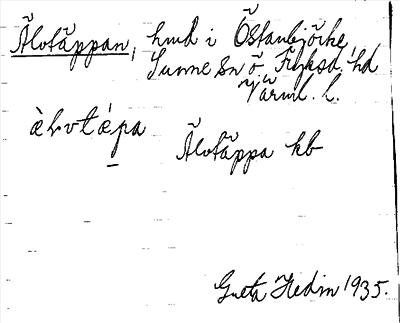 Älvtäppan, hmd i Östanbjörke,
Sunne sn ö. Fryksd. hd
Värml. l.
Älvtäppa kb
Greta Hedin 1935.